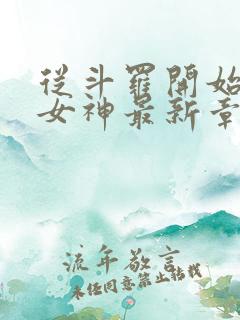 從斗羅開始
女神最新章
流年敬言
未经同意禁止转载